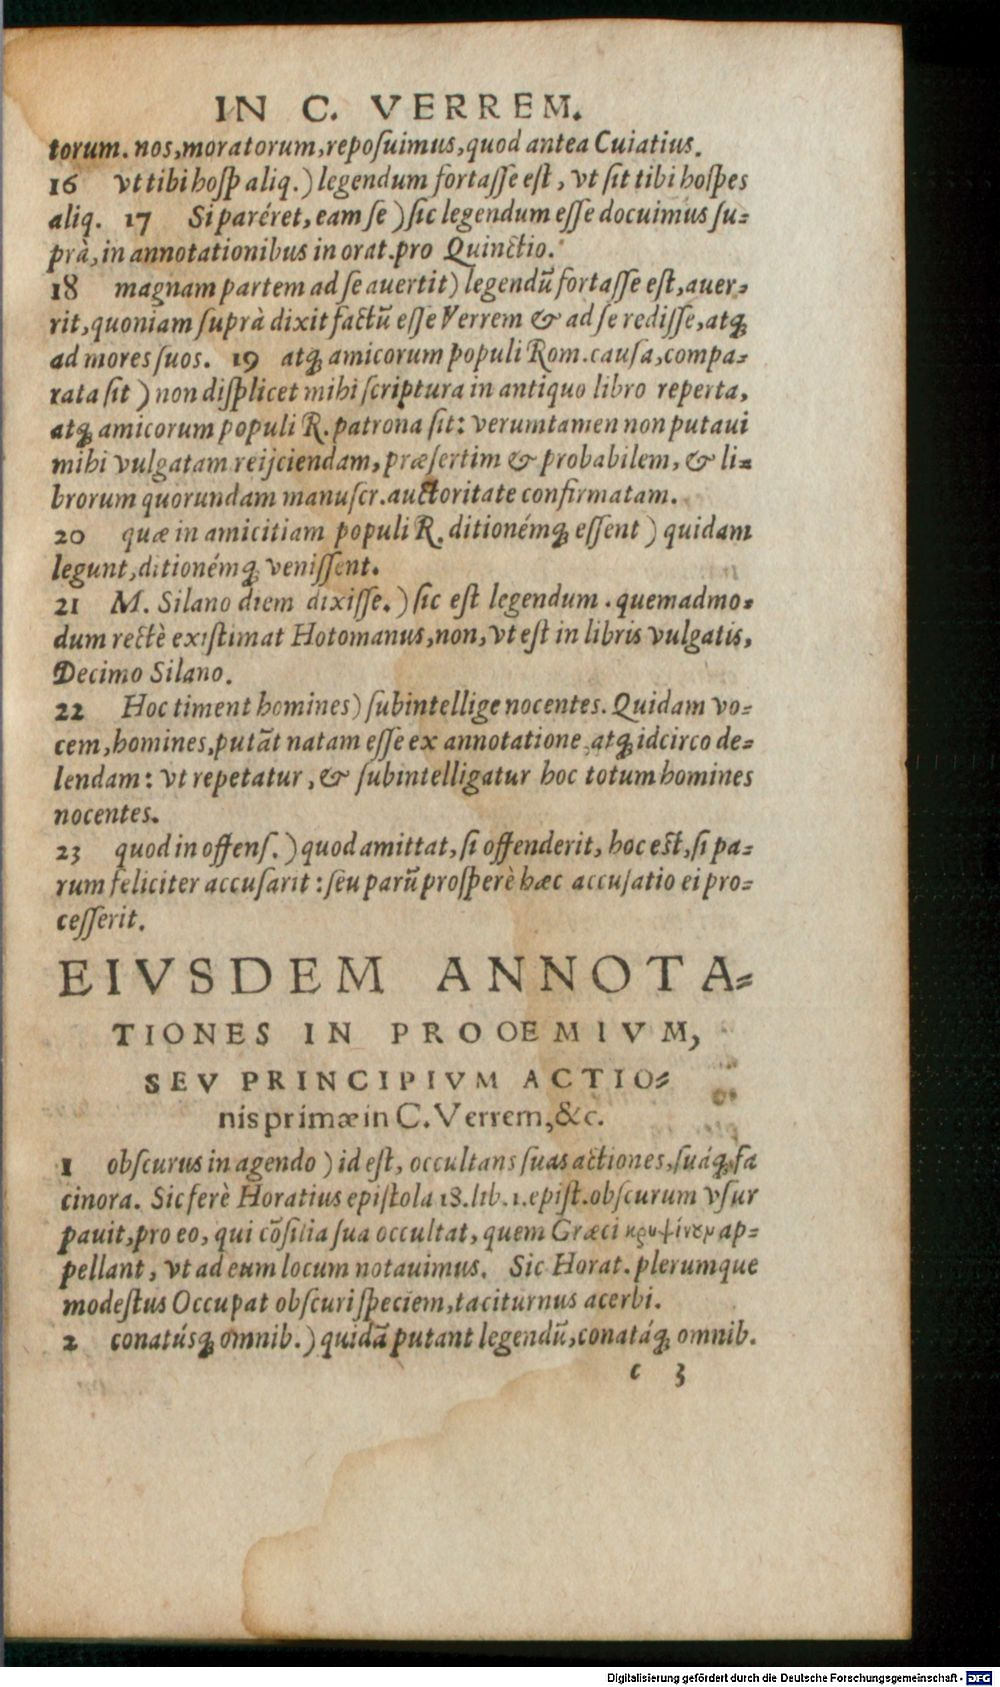 IN C. VERREM.
torum. nos, moratorum, reposuimus, quod antea Cuiatius.
16 vt tibi hosp aliq.) legendum fortasse est, vt sit tibi hospes
aliq. 17 Si paréret, eam se) sic legendum esse docuimus su-
prà, in annotationibus in orat. pro Quinctio.
18 magnam partem ad se auertit) legendũ fortasse est, auer-
rit, quoniam suprà dixit factũ esse Verrem & ad se redisse, atq;
ad mores suos. 19 atq; amicorum populi Rom. causa, compa-
rata sit) non displicet mihi scriptura in antiquo libro reperta,
atq; amicorum populi R. patrona sit: verumtamen non putaui
mihi vulgatam reijciendam, præsertim & probabilem, & li-
brorum quorundam manuscr. auctoritate confirmatam.
20 quæ in amicitiam populi R. ditionémq; essent) quidam
legunt, ditionémq; venissent.
21 M. Silano diem dixisse.) sic est legendum. quemadmo-
dum rectè existimat Hotomanus, non, vt est in libris vulgatis,
Decimo Silano.
22 Hoc timent homines) subintellige nocentes. Quidam vo-
cem, homines, putãt natam esse ex annotatione, atq; idcirco de-
lendam: vt repetatur, & subintelligatur hoc totum homines
nocentes.
23 quod in offens.) quod amittat, si offenderit, hoc est, si pa-
rum feliciter accusarit: seu parũ prosperè hæc accusatio ei pro-
cesserit.
EIVSDEM ANNOTA-
TIONES IN PROOEMIVM,
SEV PRINCIPIVM ACTIO-
nis primæ in C. Verrem, &c.
1 obscurus in agendo) id est, occultans suas actiones, suáq; fa
cinora. Sic ferè Horatius epistola 18. lib. 1. epist. obscurum vsur
pauit, pro eo, qui cõsilia sua occultat, quem Græci κρυψίνουν ap-
pellant, vt ad eum locum notauimus. Sic Horat. plerumque
modestus Occupat obscuri speciem, taciturnus acerbi.
2 conatúsq; omnib.) quidã putant legendũ, conatáq; omnib.
c 3
Digitalisierung gefördert durch die Deutsche Forschungsgemeinschaft - DFG